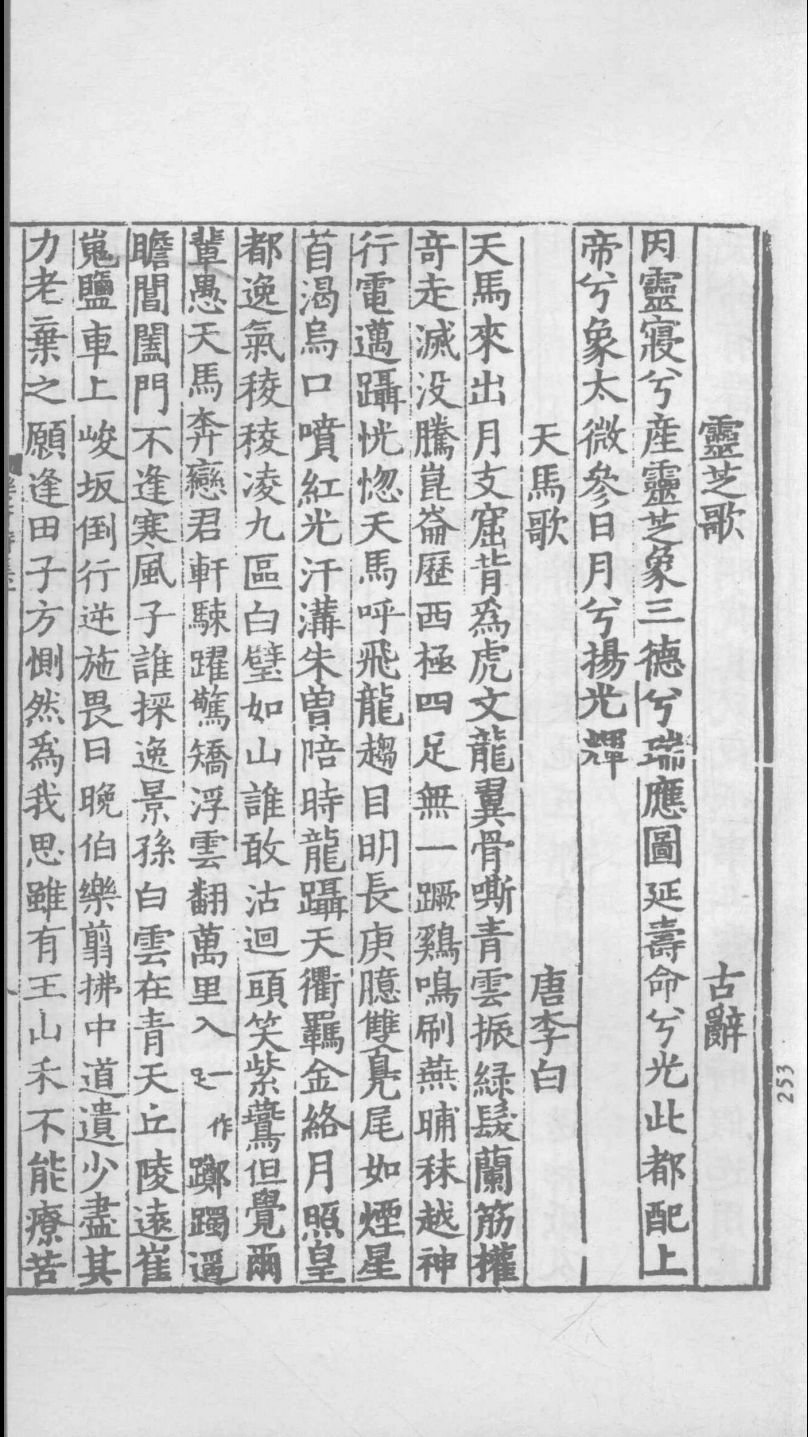 靈芝歌　古辭
因靈寢兮産靈芝象三德兮瑞應圖延壽命兮光此都配上
帝兮象太微參日月兮揚光輝
天馬歌　唐李白
天馬來出月支窟背爲虎文龍翼骨嘶青雲振緑髮蘭筋權
竒走滅没騰崑崙歷西極四足無一蹶鷄鳴刷燕晡秣越神
行電邁躡恍惚天馬呼飛龍趨目明長庚臆雙鳧尾如煙星
首渴烏口噴紅光汗溝朱曽陪時龍躡天衢羈金絡月照皇
都逸氣稜稜凌九區白璧如山誰敢沽迴頭笑紫鷰但覺爾
輩愚天馬奔戀君軒駷躍驚矯浮雲翻萬里入一作足躑躅遥
瞻閶闔門不逢寒風子誰採逸景孫白雲在青天丘陵遠崔
嵬鹽車上峻坂倒行逆施畏日晚伯樂翦拂中道遺少盡其
力老棄之願逢田子方惻然爲我思雖有玉山禾不能療苦
253